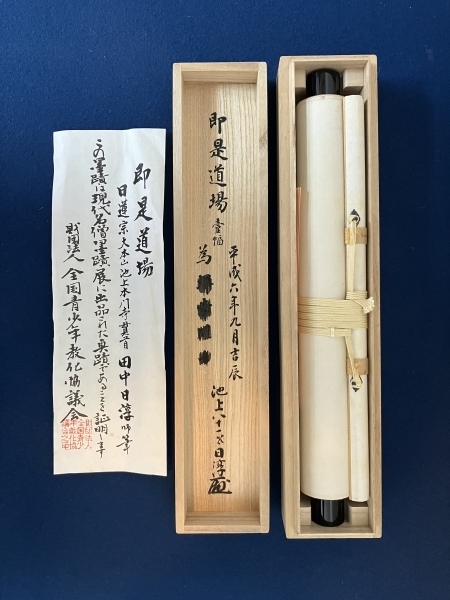 即是道場
日蓮宗大本山池上本門寺貫首 田中日淳師筆
この墨蹟は現代名僧墨蹟展に出品された真蹟であることを証明します
財団法人 全国青少年教化協議会
財団法人
全国青少
年教化協
議会之印
即是道場 壹幅
平成六年九月吉辰
為
池上八十一世日淳